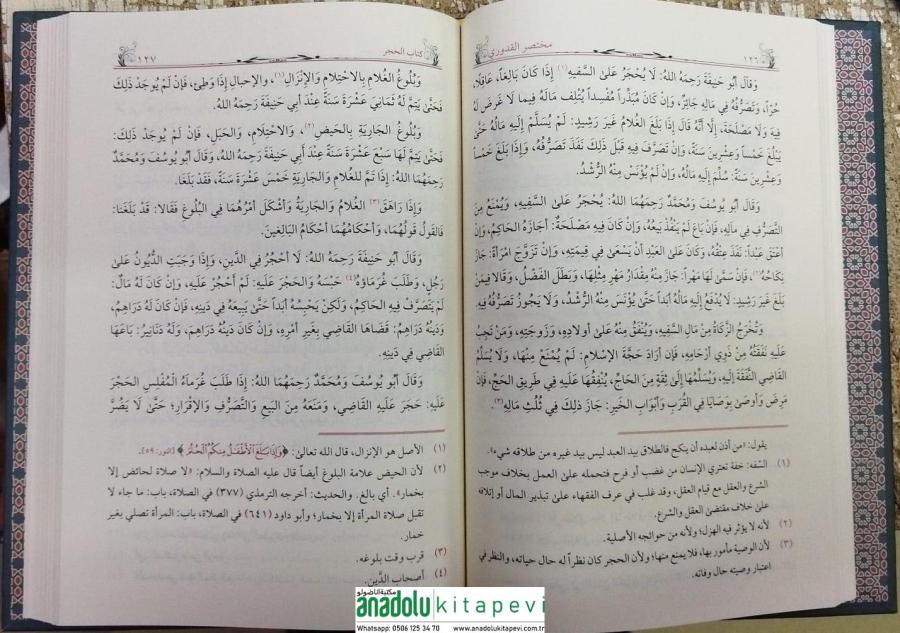 مختصر القدوري
١٢٦
وَقَالَ أَبُو حَنِيفَةَ رَحِمَهُ اللهُ: لَا يُحْجَرُ عَلَىٰ السَّفِيهِ(١) إِذَا كَانَ بَالِغاً، عَاقِلاً،
حُرّاً، وَتَصَرُّفُهُ فِي مَالِهِ جَائِزٌ، وَإِنْ كَانَ مُبَذِّراً مُفْسِداً يُتْلِف مَالَهُ فِيما لَا غَرَضَ لَهُ
فِيهِ وَلَا مَصْلَحَةَ، إِلَّا أَنَّهُ قَالَ إِذَا بَلَغَ الغُلَامُ غَيرَ رَشِيدٍ: لَمْ يُسَلَّمْ إِلَيهِ مَالُهُ حَتَّىٰ
يَبْلُغَ خَمْساً وَعِشْرِينَ سَنَةً، وَإِنْ تَصَرَّفَ فِيهِ قَبْلَ ذَلِكَ نَفَذَ تَصَرُّفُهُ، وَإِذَا بَلَغَ خَمْساً
وَعِشْرِينَ سَنَةً: سُلِّمَ إِلَيهِ مَالُهُ، وَإِنْ لَمْ يُؤْنَسْ مِنْهُ الرُّشْدُ.
وَقَالَ أَبُو يُوسُفَ وَمُحَمَّدٌ رَحِمَهُمَا اللهُ: يُحْجَرُ عَلَىٰ السَّفِيهِ، وَيُمْنَعُ مِنَ
التَّصَرُّفِ فِي مَالِهِ، فَإِنْ بَاعَ لَمْ يَنْفُذْ بَيعُهُ، وَإِنْ كَانَ فِيهِ مَصْلَحَةٌ: أَجَازَهُ الحَاكِمُ، وَإِنْ
أَعْتَقَ عَبْداً: نَفَذَ عِتْقُهُ، وَكَانَ عَلَىٰ العَبْدِ أَنْ يَسْعَىٰ فِي قِيمَتِهِ، وَإِنْ تَزَوَّجَ امْرَأَةً: جَازَ
نِكَاحُهُ(٢)، فَإِنْ سَمَّىٰ لَهَا مَهْراً: جَازَ مِنْهُ مِقْدَارُ مَهْرِ مِثْلِهَا، وَبَطَلَ الفَضْلُ، وَقَالا فِيمَنْ
بَلَغَ غَيرَ رَشِيدٍ: لَا يُدْفَعُ إِلَيهِ مَالُهُ أَبَداً حَتَّىٰ يُؤْنَسَ مِنْهُ الرُّشْدُ، وَلَا يَجُوزُ تَصَرُّفُهُ فِيهِ.
وَتُخْرَجُ الزَّكَاةُ مِنْ مَالِ السَّفِيهِ، وَيُنْفَقُ مِنْهُ عَلَىٰ أَولَادِهِ، وَزَوجَتِهِ، وَمَنْ تَجِبُ
عَلَيهِ نَفَقَتُهُ مِنْ ذَوِي أَرْحَامِهِ، فَإِنْ أَرَادَ حَجَّةَ الإِسْلَامِ: لَمْ يُمْنَعْ مِنْهَا، وَلَا يُسَلِّمُ
القَاضِي النَّفَقَةَ إِلَيهِ، وَيُسَلِّمُهَا إِلَىٰ ثِقَةٍ مِنَ الحَاجِّ، يُنْفِقُهَا عَلَيهِ فِي طَرِيقِ الحَجِّ، فَإِنْ
مَرِضَ وَأَوصَىٰ بِوَصَايَا فِي القُرَبِ وَأَبْوَابِ الخَيرِ: جَازَ ذَلِكَ فِي ثُلُثِ مَالِهِ(٣).
يقول: «من أذن لعبده أن ينكح فالطلاق بيد العبد ليس بيد غيره من طلاقه شيء».
(١) السَّفه: خفة تعتري الإنسان من غضب أو فرح فتحمله علىٰ العمل بخلاف موجب
الشرع والعقل مع قيام العقل، وقد غلب في عرف الفقهاء علىٰ تبذير المال أو إتلافه
علىٰ خلاف مقتضىٰ العقل والشرع.
(٢) لأنه لا يؤثر فيه الهزل؛ ولأنه من حوائجه الأصلية.
(٣) لأن الوصية مأمور بها، فلا يمنع منها؛ ولأن الحجر كان نظراً له حال حياته، والنظر في
اعتبار وصيته حال وفاته.
كتاب الحجر
١٢٧
وَبُلُوغُ الغُلَامِ بِالاحْتِلَامِ وَالإِنْزَالِ(١)، والإحبالِ إِذَا وَطِئَ، فَإِنْ لَمْ يُوجَدْ ذَلِكَ
فَحَتَّىٰ يَتِمَّ لَهُ ثَمَانِيَ عَشْرَةَ سَنَةً عِنْدَ أَبِي حَنِيفَةَ رَحِمَهُ اللهُ.
وَبُلُوغُ الجَارِيَةِ بِالحَيضِ(٢)، وَالاحْتِلَامِ، وَالحَبَلِ، فَإِنْ لَمْ يُوجَدْ ذَلِكَ:
فَحَتَّىٰ يَتِمَّ لَهَا سَبْعَ عَشْرَةَ سَنَةً عِنْدَ أَبِي حَنِيفَةَ رَحِمَهُ اللهُ، وَقَالَ أَبُو يُوسُفَ وَمُحَمَّدٌ
رَحِمَهُمَا اللهُ: إِذَا تَمَّ لِلْغُلَامِ وَالجَارِيَةِ خَمْسَ عَشْرَةَ سَنَةً، فَقَدْ بَلَغَا.
وَإِذَا رَاهَقَ(٣) الغُلَامُ وَالجَارِيَةُ وَأَشْكَلَ أَمْرُهُمَا فِي البُلُوغِ فَقَالا: قَدْ بَلَغْنَا:
فَالقَولُ قَولُهُمَا، وَأَحْكَامُهُمَا أَحْكَامُ البَالِغِينَ.
وَقَالَ أَبُو حَنِيفَةَ رَحِمَهُ اللهُ: لَا أَحْجُرُ فِي الدَّينِ، وَإِذَا وَجَبَتِ الدُّيُونُ عَلَىٰ
رَجُلٍ، وَطَلَبَ غُرَمَاؤُهُ(٤) حَبْسَهُ وَالحَجْرَ عَلَيهِ: لَمْ أَحْجُرْ عَلَيهِ، وَإِنْ كَانَ لَهُ مَالٌ:
لَمْ يَتَصَرَّفْ فِيهِ الحَاكِمُ، وَلَكِنْ يَحْبِسُهُ أَبَداً حَتَّىٰ يَبِيعَهُ فِي دَينِهِ، فَإِنْ كَانَ لَهُ دَرَاهِمُ،
وَدَينُهُ دَرَاهِمُ: قَضَاهَا القَاضِي بِغَيرِ أَمْرِهِ، وَإِنْ كَانَ دَينُهُ دَرَاهِمَ، وَلَهُ دَنَانِيرُ: بَاعَهَا
القَاضِي فِي دَينِهِ.
وَقَالَ أَبُو يُوسُفَ وَمُحَمَّدٌ رَحِمَهُمَا اللهُ: إِذَا طَلَبَ غُرَمَاءُ المُفْلِسِ الحَجْرَ
عَلَيهِ: حَجَرَ عَلَيهِ القَاضِي، وَمَنَعَهُ مِنَ البَيعِ وَالتَّصَرُّفِ وَالإِقْرَارِ؛ حَتَّىٰ لَا يَضُرَّ
(١) الأصل هو الإنزال، قال الله تعالىٰ: ﴿وَإِذَا بَلَغَ الْأَطْفَالُ مِنكُمُ الْحُلُمَ﴾ [النور: ٥٩].
(٢) لأن الحيض علامة البلوغ أيضاً قال عليه الصلاة والسلام: «لا صلاة لحائض إلا
بخمار». أي بالغ. والحديث: أخرجه الترمذي (٣٧٧) في الصلاة، باب: ما جاء لا
تقبل صلاة المرأة إلا بخمار؛ وأبو داود (٦٤١) في الصلاة، باب: المرأة تصلي بغير
خمار.
(٣) قرب وقت بلوغه.
(٤) أصحاب الدَّين.
مكتبة اناضولو
anadolu kitapevi
Whatsapp: 0506 125 34 70 www.anadolukitapevi.com.tr